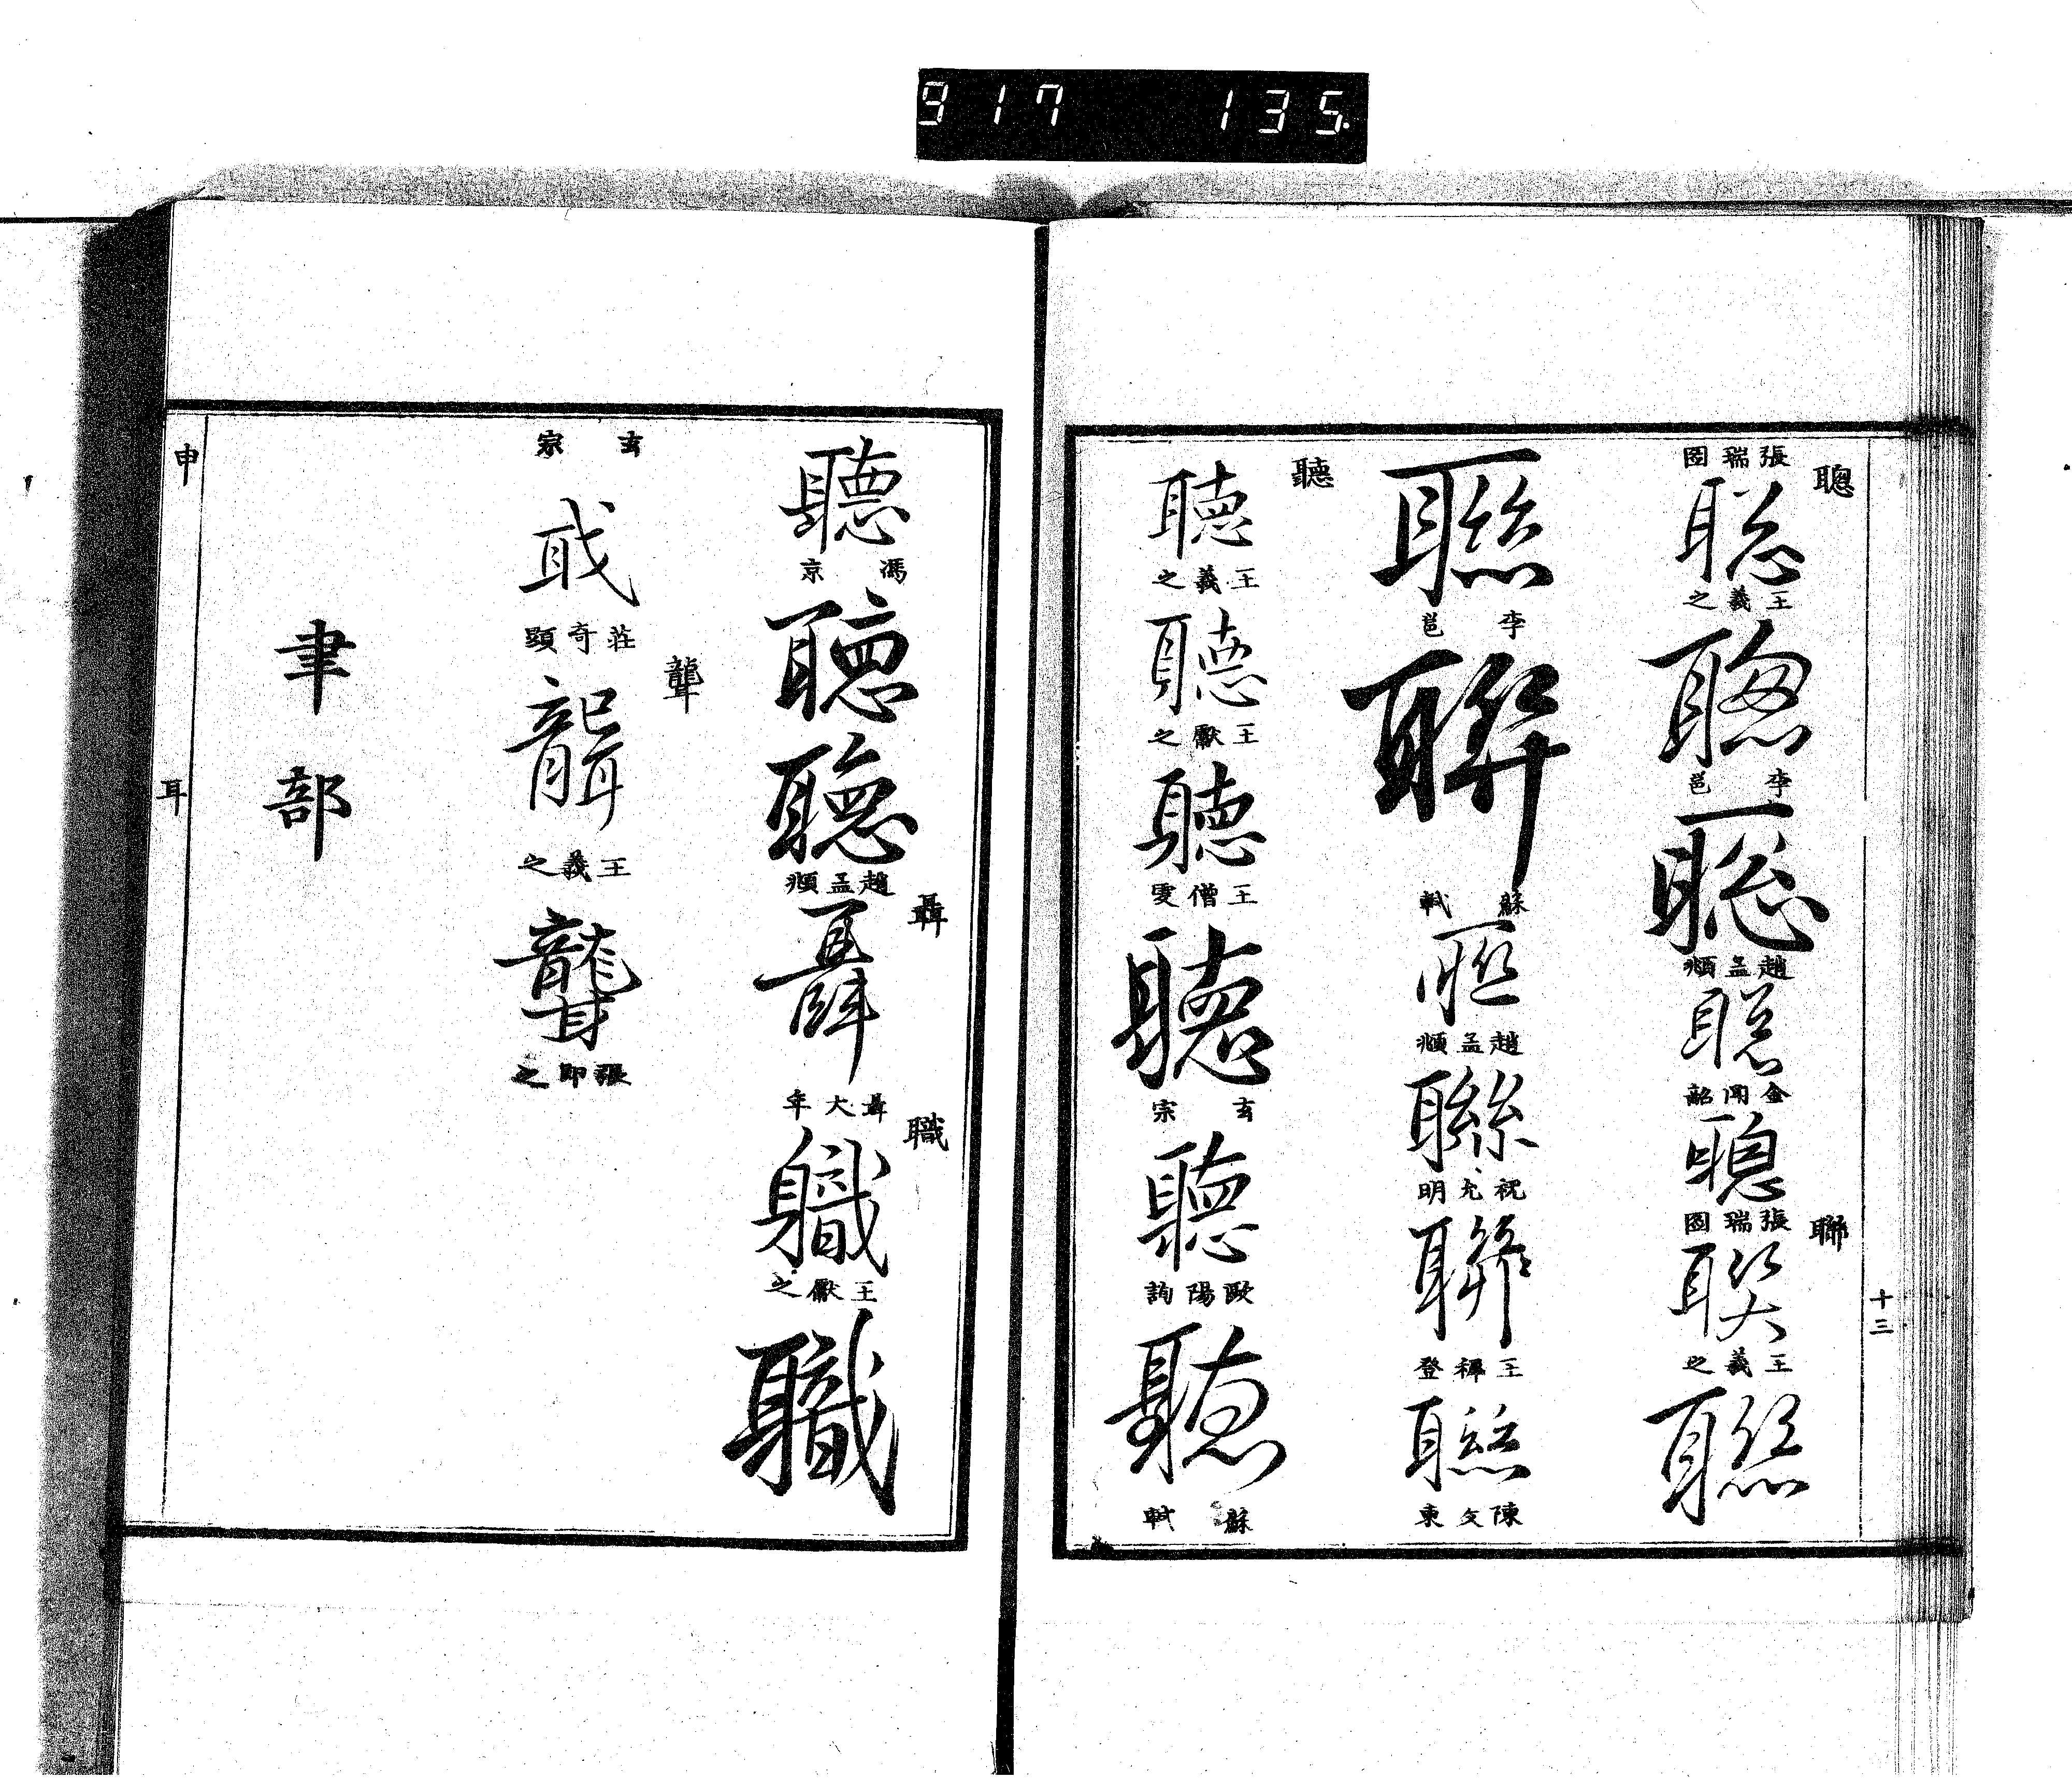 917 135.
聰
張瑞圖
聰
王羲之
聰
李邕
聰
趙孟頫
聰
金湧韶
聰
張瑞圖
聯
聯
王羲之
聯
十三
聯
李邕
聯
蘇軾
聯
趙孟頫
聯
祝允明
聯
王穉登
聯
陳文東
聽
聽
王羲之
聽
王獻之
聽
王僧虔
聽
玄宗
聽
歐陽詢
聽
蘇軾
聽
馮京
聽
聽
趙孟頫
聶
聶
聶大年
職
職
王獻之
職
玄宗
職
莊奇顯
聾
聾
王羲之
聾
張即之
聿部
申
耳